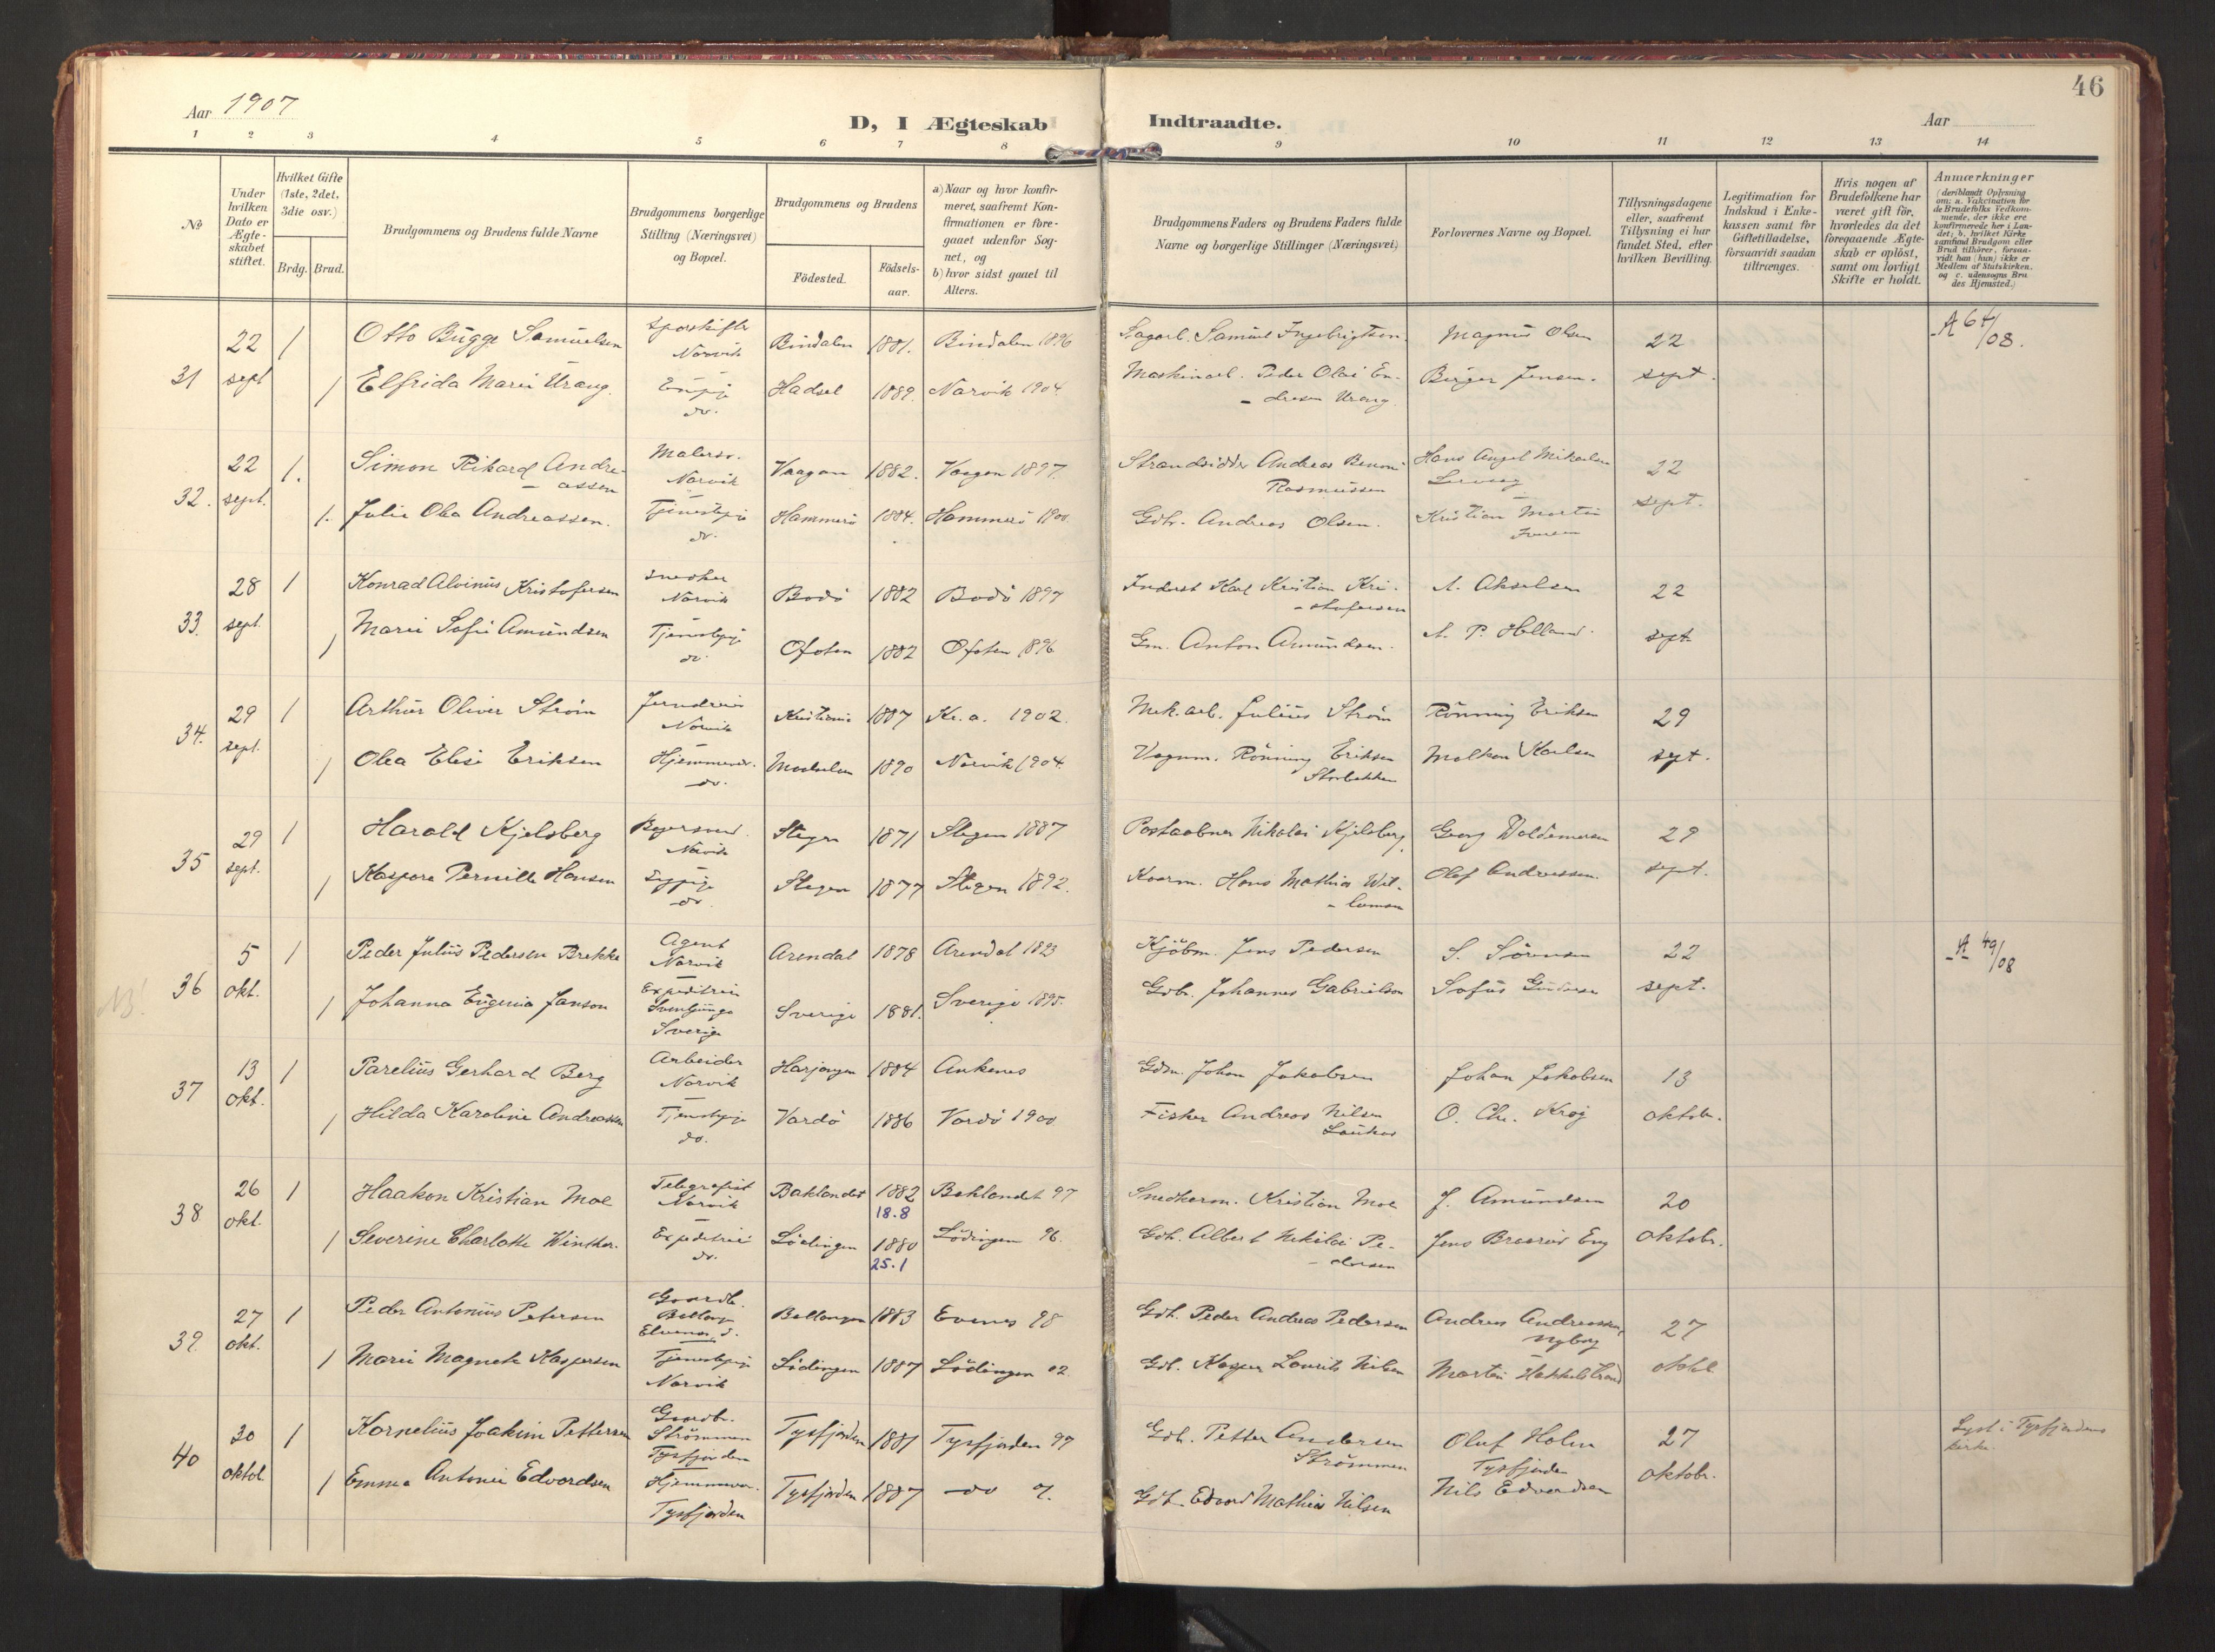 46
Aar 1907
D, I Ægteskab Indtraadte.
Aar
1 2 3 4 5 6 7 8 9 10 11 12 13 14
№
Under hvilken Dato er Ægte-skabet stiftet.
Hvilket Gifte (1ste, 2det, 3die osv.)
Brdg. Brud.
Brudgommens og Brudens fulde Navne
Brudgommens borgerlige Stilling (Næringsvei) og Bopæl.
Brudgommens og Brudens
Födested.
Födsels-aar.
a) Naar og hvor konfir-meret, saafremt Kon-firmationen er fore-gaaet udenfor Sog-net, og
b) hvor sidst gaaet til Alters.
Brudgommens Faders og Brudens Faders fulde Navne og borgerlige Stillinger (Næringsvei)
Forlovernes Navne og Bopæl.
Tillysningsdagene eller, saafremt Tillysning ei har fundet Sted, efter hvilken Bevilling.
Legitimation for Indskud i Enke-kassen samt for Giftetilladelse, forsaavidt saadan tiltrænges.
Hvis nogen af Brudefolkene har været gift för, hvorledes da det foregaaende Ægte-skab er oplöst, samt om lovligt Skifte er holdt.
Anmærkninger
(deriblandt Oplysning om: a. Vakcination for de Brudefolks Vedkom-mende, der ikke ere konfirmerede her i Lan-det; b. hvilket Kirke-samfund Brudgom eller Brud tilhörer, forsaa-vidt han (hun) ikke er Medlem af Statskirken, og c. udensogns Bru-des Hjemsted.)
31 22 sept 1 Otto Bugge Samuelsen Sporskifter Narvik Bindalen 1881. Bindalen 1896 Sagarb. Samuel Ingebrigtsen Magnus Olsen 22 sept. A 64/08.
1 Elfrida Marie Urang. do. Hadsel 1889. Narvik 1904. Maskinarb. Peder Olai En- Urang. Birger Jensen.
32. 22 sept. 1. Simon Rikard Andre-assen Malersv. Narvik Vaagan 1882. Vaagan 1897. Strandsidder Andreas Benoni Rasmussen Hans Angel Mikalsen 22 sept.
1. Julie Olea Andreassen. Tjenestepige do. Hammerö 1884. Hammerö 1900 Gdb. Andreas Olsen. Kristian Martin
33. 28 sept. 1 Konrad Alvinus Kristofersen Snedker Narvik Bodö 1882 Bodö 1897 Inderst Karl Kristian Kri-stofersen A. Akselsen 22 sept.
1 Marie Sofie Amundsen Tjenestepige do. Ofoten 1882 Ofoten 1896 Gm. Anton Amundsen. A. P. Holland.
34. 29 sept. 1 Arthur Oliver Ström Jerndreier Narvik Kristiania 1887 Kr.a. 1902. Mek. arb. Julius Ström Rönning Eriksen 29 sept.
1 Olea Elise Eriksen Hjemmev. do. 1890 Narvik 1904. Vognm. Rönning Eriksen Storbakken Karlsen
35 29 sept. 1 Harald Kjelsberg Bagersvend. Narvik Stegen 1871 Stegen 1887 Postaabner Nikolai Kjelsberg. Georg Waldemarsen 29 sept.
1 Kaspara Pernille Hansen Sypige do. Stegen 1877 Stegen 1892. Hans Mathias Wil- Olaf Andreassen.
NB! 36 5 okt. 1 Peder Julius Pedersen Brekke Agent Narvik Arendal 1878 Arendal 1893 Kjöbm. Jens Pedersen S. Sörensen 22 sept. A 49/08
1 Johanna Eugenia Janson Expeditrice Svenljunga Sverige Sverige 1881. Sverige 1895. Gdb. Johannes Gabrielson Sofus
37 13 okt. 1 Parelius Gerhard Berg Arbeider Narvik Harjangen 1884 Ankenes Gdm. Johan Jakobsen Johan Jakobsen 13 oktobr.
1 Hilda Karoline Andreassen Tjenestepige do. Vardö 1886 Vardö 1900 Fisker Andreas Nilsen O. Chr. Krog
38 26 okt. 1 Haakon Kristian Moe Telegrafist Narvik Baklandet 1882 18.8 Baklandet 97 Snedkerm. Kristian Moe J. Amundsen 20 oktobr.
1 Severine Charlotte Winther. Expeditrice do. Lödingen 1880 25.1 Lödingen 96. Gdb. Albert Nikolai Pe-dersen Jens Eng
39. 27 okt. 1 Peder Antonius Petersen Gaardb. Ballangen 1883 Evenes 98 Gdb. Peder Andreas Pedersen Andreas Andreassen, Nyborg 27 oktbr
1 Marie Magnete Kaspersen Tjenestepige Narvik Lödingen 1887 Lödingen 02 Gdb. Kasper Laurits Nilsen Martin
40 30 oktob. 1 Kornelius Joakim Pettersen Gaardbr. Strömmen Tysfjorden Tysfjorden 1881 Tysfjorden 97 Gdb. Petter Andersen Strömmen Oluf Holm Tysfjorden 27 oktobr. Lyst i Tysfjordens kirke.
1 Emma Antonie Edvardsen Hjemmev. Tysfjorden Tysfjorden 1887 do Gdb. Edvard Mathias Nilsen Nils Edvardsen